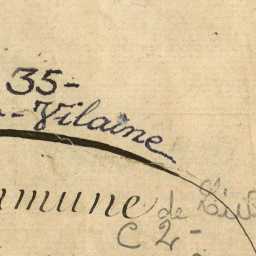 35-
-Vilaine
mmune de
C 2-